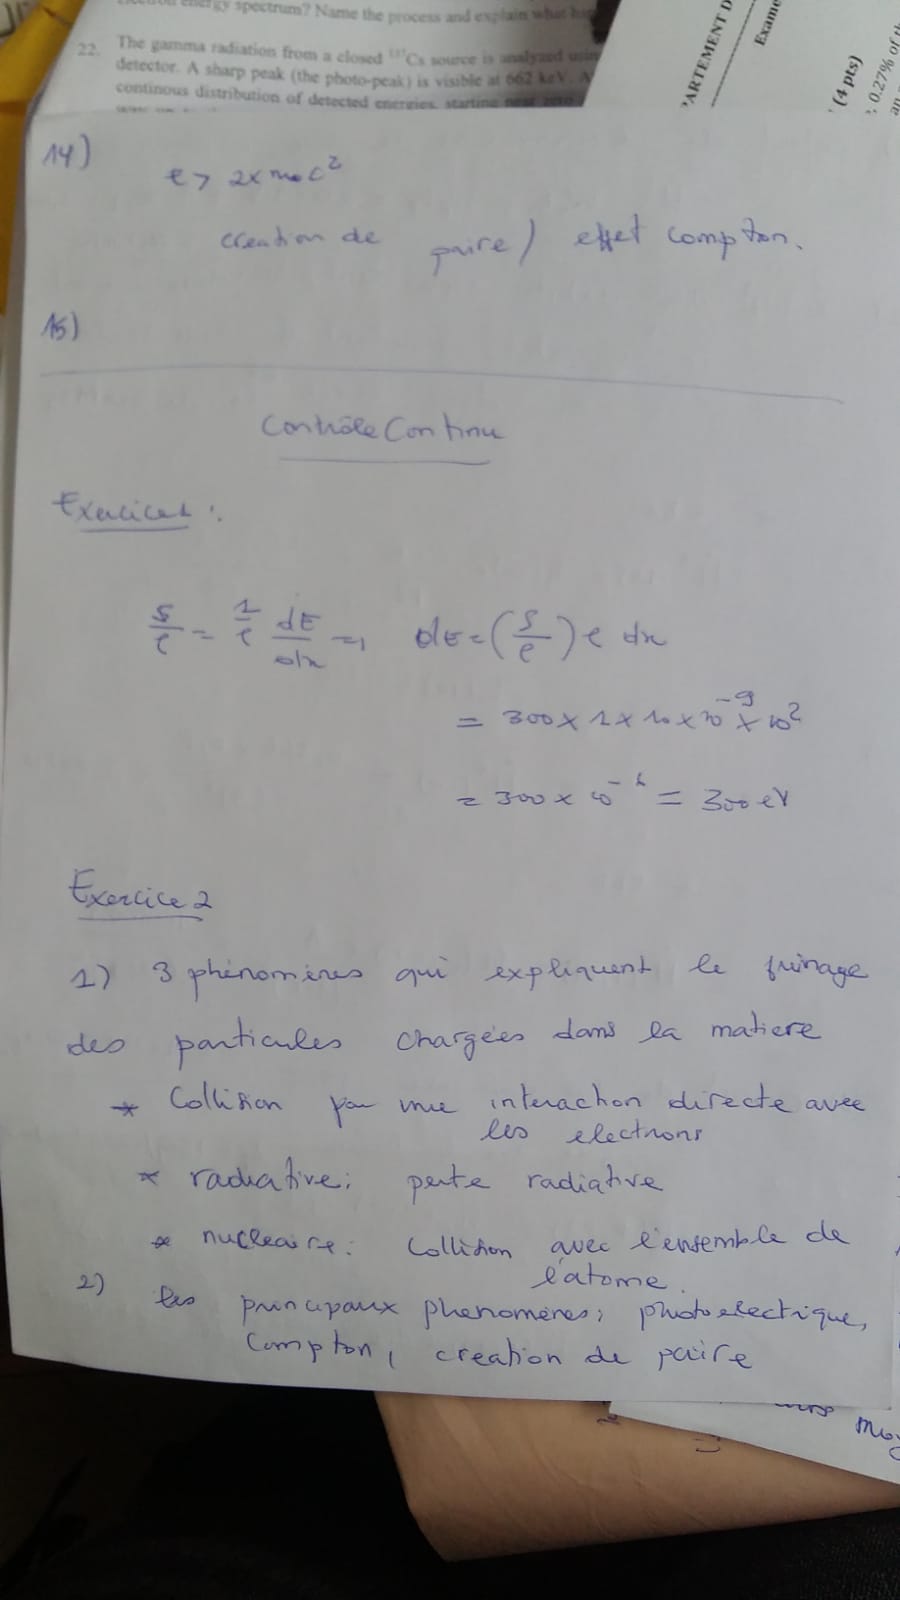 energy spectrum? Name the process and explain what
22. The gamma radiation from a closed ¹³⁷Cs source is analyzed
detector. A sharp peak (the photo-peak) is visible at 662 keV. A
continous distribution of detected energies, starting near zero
PARTEMENT D
Exame
(4 pts)
, 0.27% of
an
14)
E > 2x m₀c²
creation de paire / effet compton.
15)
Contrôle Continu
Exercice 1 :
S/ρ = 1/ρ dE/dx => dE = (S/ρ) ρ dx
= 300 x 1 x 10 x 10⁻⁹ x 10²
= 300 x 10⁻⁶ = 300 eV
Exercice 2
1) 3 phénomères qui expliquent le freinage
des particules chargées dans la matiere
* Collision par une interaction directe avec
les electrons
* radiative: perte radiative
* nucleaire: Collision avec l'ensemble de
l'atome
2) les principaux phenomères: photoelectrique,
Compton, creation de paire